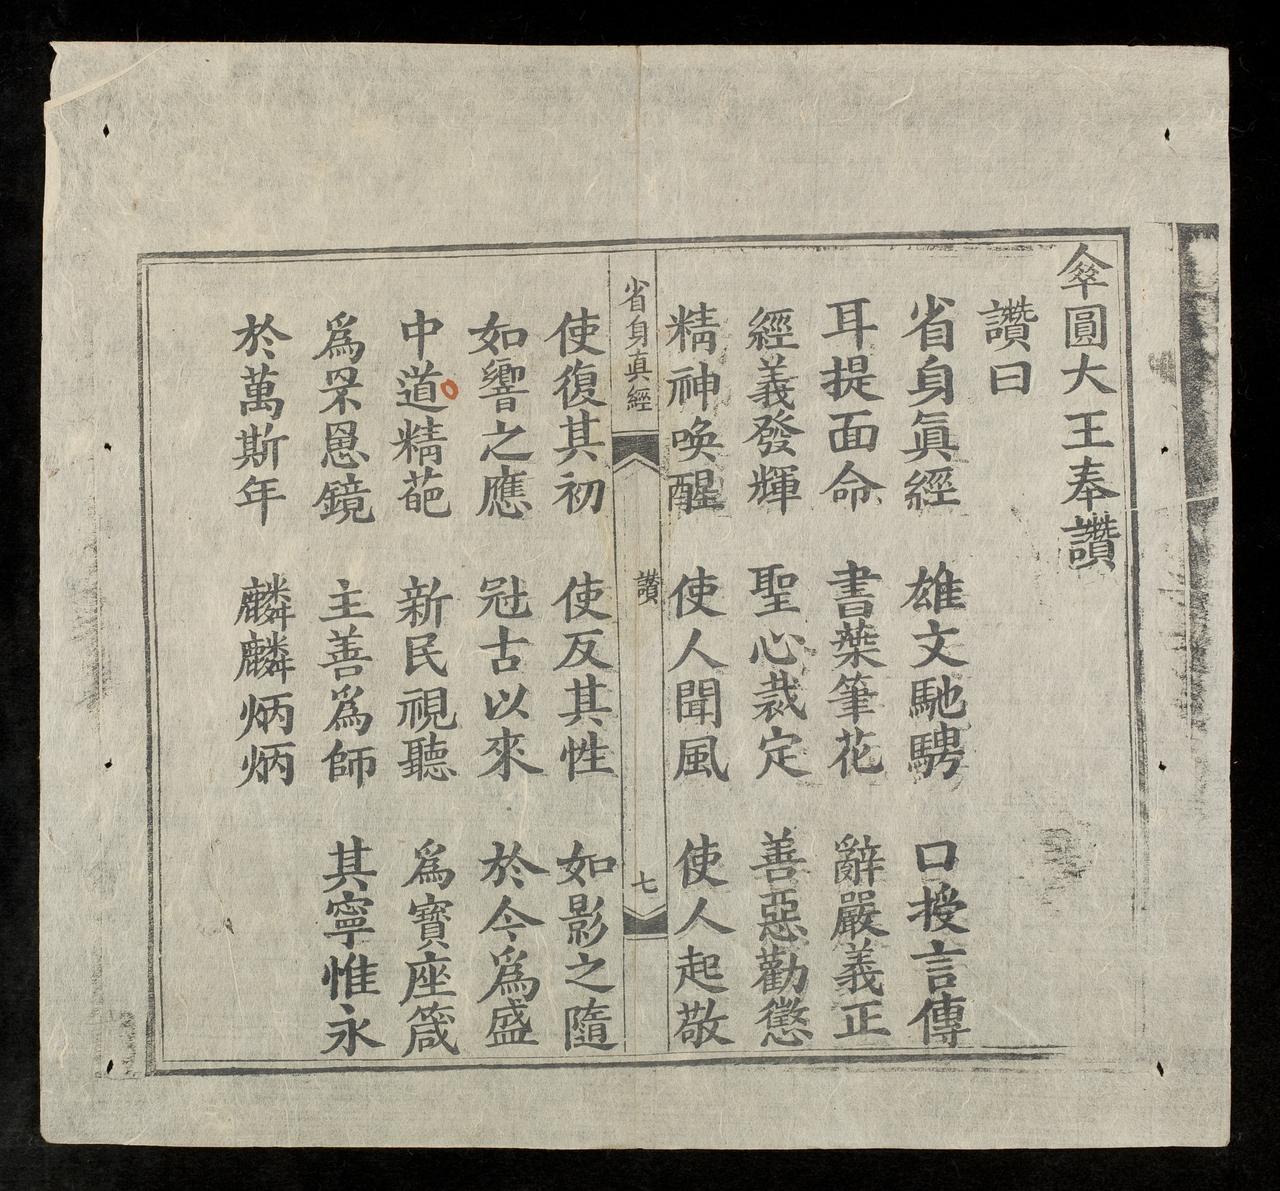 傘圓大王奉讚
讚曰
省身眞經 雄文馳騁 口授言傳
耳提面命 書葉筆花 辭嚴義正
經義發輝 聖心裁定 善惡勸懲
精神喚醒 使人聞風 使人起敬
省身真經 讚 七
使復其初 使反其性 如影之隨
如響之應 冠古以來 於今爲盛
中道精葩 新民視聽 爲寶座箴
爲罘罳鏡 主善爲師 其寧惟永
於萬斯年 麟麟炳炳